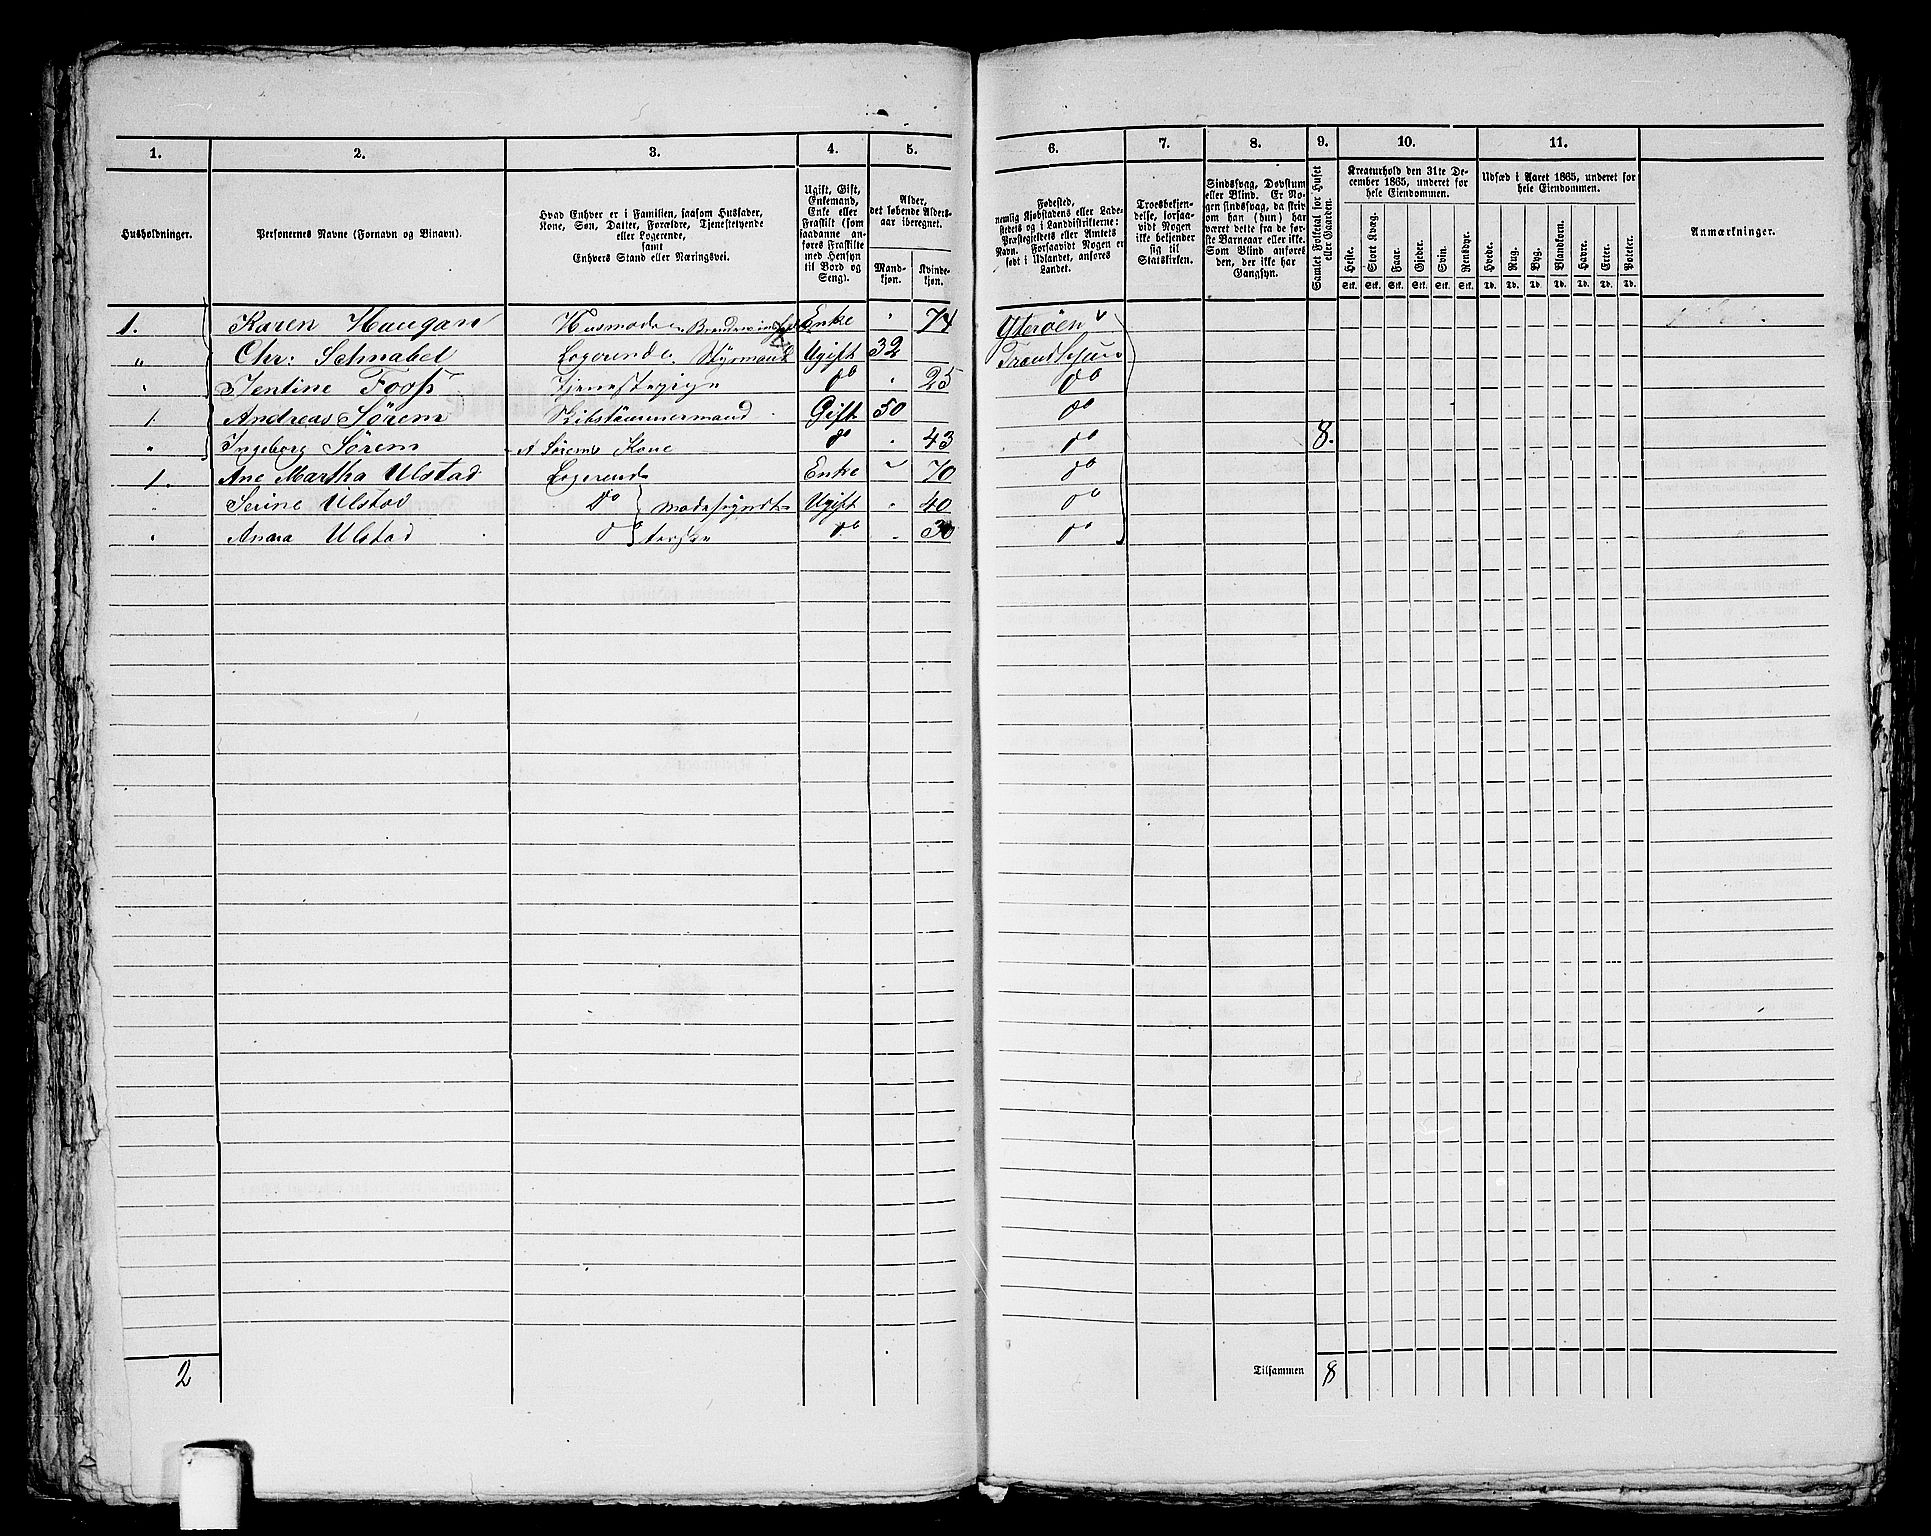 1. 2. 3. 4. 5. 6. 7. 8. 9. 10. 11.
Husholdninger.
Personernes Navne (Fornavn og Binavn).
Hvad Enhver er i Familien, saasom Husfader,
Kone, Søn, Datter, Forældre, Tjenestetyende
eller Logerende,
samt
Enhvers Stand eller Næringsvei.
Ugift, Gift,
Enkemand,
Enke eller
Fraskilt (som
saadanne an-
føres Fraskilte
med Hensyn
til Bord og
Seng).
Alder,
det løbende Alders-
aar iberegnet.
Mand-
kjøn.
Kvinde-
kjøn.
Fødested,
nemlig Kjøbstadens eller Lade-
stedets og i Landdistrikterne:
Præstegjeldets eller Amtets
Navn. Forsaavidt Nogen er
født i Udlandet, anføres
Landet.
Troesbekjen-
delse, forsaa-
vidt Nogen
ikke bekjender
sig til
Statskirken.
Sindssvag, Døvstum
eller Blind. Er No-
gen sindssvag, da skriv
om han (hun) har
været dette fra de før-
ste Barneaar eller ikke.
Som Blind anføres
den, der ikke har
Gangsyn.
Samlet Folketal for Huset
eller Gaarden.
Kreaturhold den 31te De-
cember 1865, underet for
hele Eiendommen.
Heste. Stort Kvæg. Faar. Gjeder. Svin. Rensdyr.
Stk. Stk. Stk. Stk. Stk. Stk.
Udsæd i Aaret 1865, underet for
hele Eiendommen.
Hvede. Rug. Byg. Blandkorn. Havre. Erter. Poteter.
Td. Td. Td. Td. Td. Td. Td.
Anmærkninger.
1. Karen Haugan Enke " 74 Yterøen
" Chr: Schnabel Logerende, Styrmand Ugift 32 Trondhjem
" Jentine Fooss Tjenestepige do " 25 do
1 Andreas Sørem Skibstømmermand Gift 50 do
" Ingeborg Sørem A Sørems Kone do " 43 do 8.
1. Ane Martha Ulstad Logerende Enke " 70 do
" Serine Ulstad do Ugift " 40 do
" Anna Ulstad do do " 30 do
2 Tilsammen 8